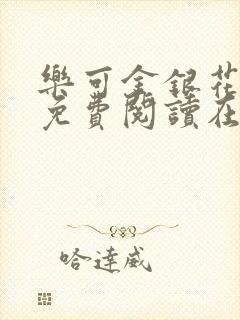 樂可金銀花
免費閱讀在
哈達威